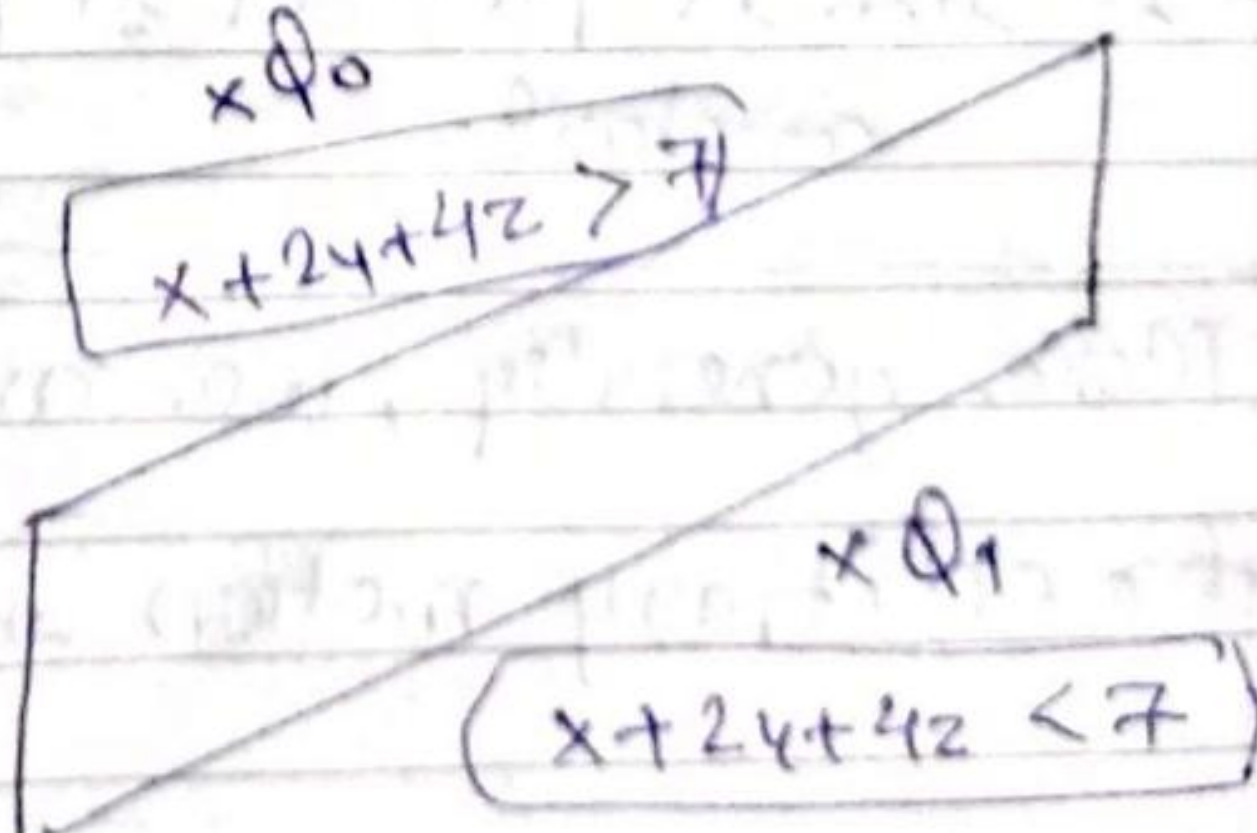 x Q₀
x+2y+4z > 7
x Q₁
x+2y+4z < 7